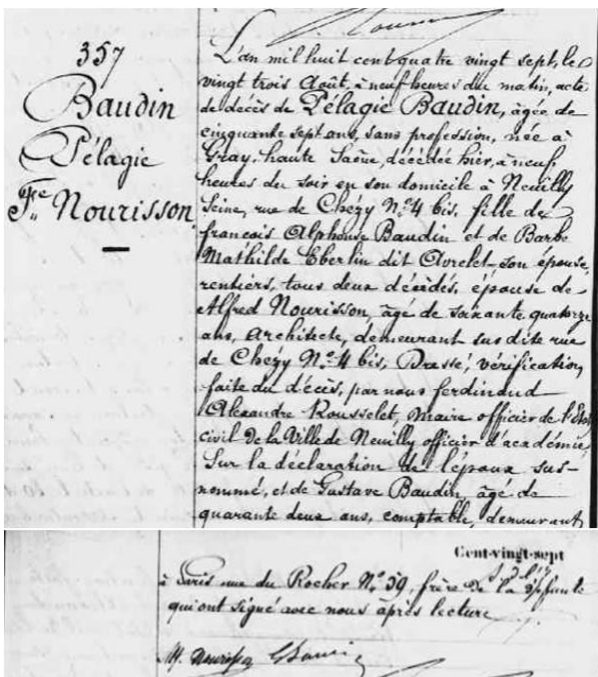 357
Baudin
Pélagie
Fe Nourisson
L'an mil huit cent quatre vingt sept, le
vingt trois Août, à neuf heures du matin, acte
de décès de Pélagie Baudin, âgée de
cinquante sept ans, sans profession, née à
Gray, haute Saône, décédée hier, à neuf
heures du soir en son domicile à Neuilly
Seine, rue de Chézy No 4 bis, fille de
francois Alphonse Baudin et de Barbe
Mathilde Eberlin dit Avrelet son épouse,
rentiers, tous deux décédés, épouse de
Alfred Nourisson, âgé de soixante quatorze
ans, Architecte, demeurant sus dite rue
de Chézy No 4 bis, Dressé, vérification
faite du décès, par nous ferdinand
Alexandre Rousselet, Maire officier de l'Etat
civil de la Ville de Neuilly officier d'académie,
Sur la déclaration de l'époux sus-
nommé, et de Gustave Baudin, âgé de
quarante deux ans, comptable, demeurant
Cent-vingt-sept
à Paris rue du Rocher No 59, frère de la défunte
qui ont signé avec nous après lecture
Nourisson